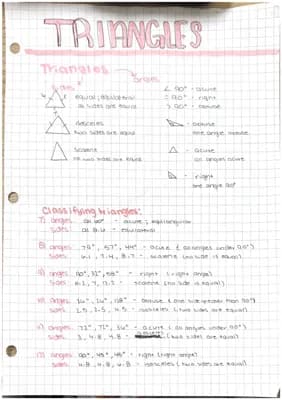 TRIANGLES
Triangles
sides
angles
equal/equilateral
all sides are equal
isosceles
two sides are equal
scalene
no two sides are equal
< 90° - acute
= 90° - right
> 90° - obtuse
obtuse
one angle obtuse
acute
all angles acute
right
one angle 90°
Classifying triangles:
angles: all 60° - acute, equiangular
sides: all - equilateral
angles: 79°, 57°, 44° - acute (all angles under 90°)
sides: 7.4, 8.7 - scalene (no side is equal)
angles: 90°, 58° - right (right angle)
sides: 7, 13.2 - scalene (no side is equal)
angles: 26°, 26°, 128° - obtuse
sides: 2.5, 2.5, 4.5 - isosceles (two sides are equal)
angles: 72°, 72°, 36° - acute (all angles under 90°)
sides: 3, 4.8, 4.8 - (two sides are equal)
angles: 90°, 45°, 45° - right (right angle)
sides: 4.8, 4.8, 6.8 - isosceles (two sides are equal)